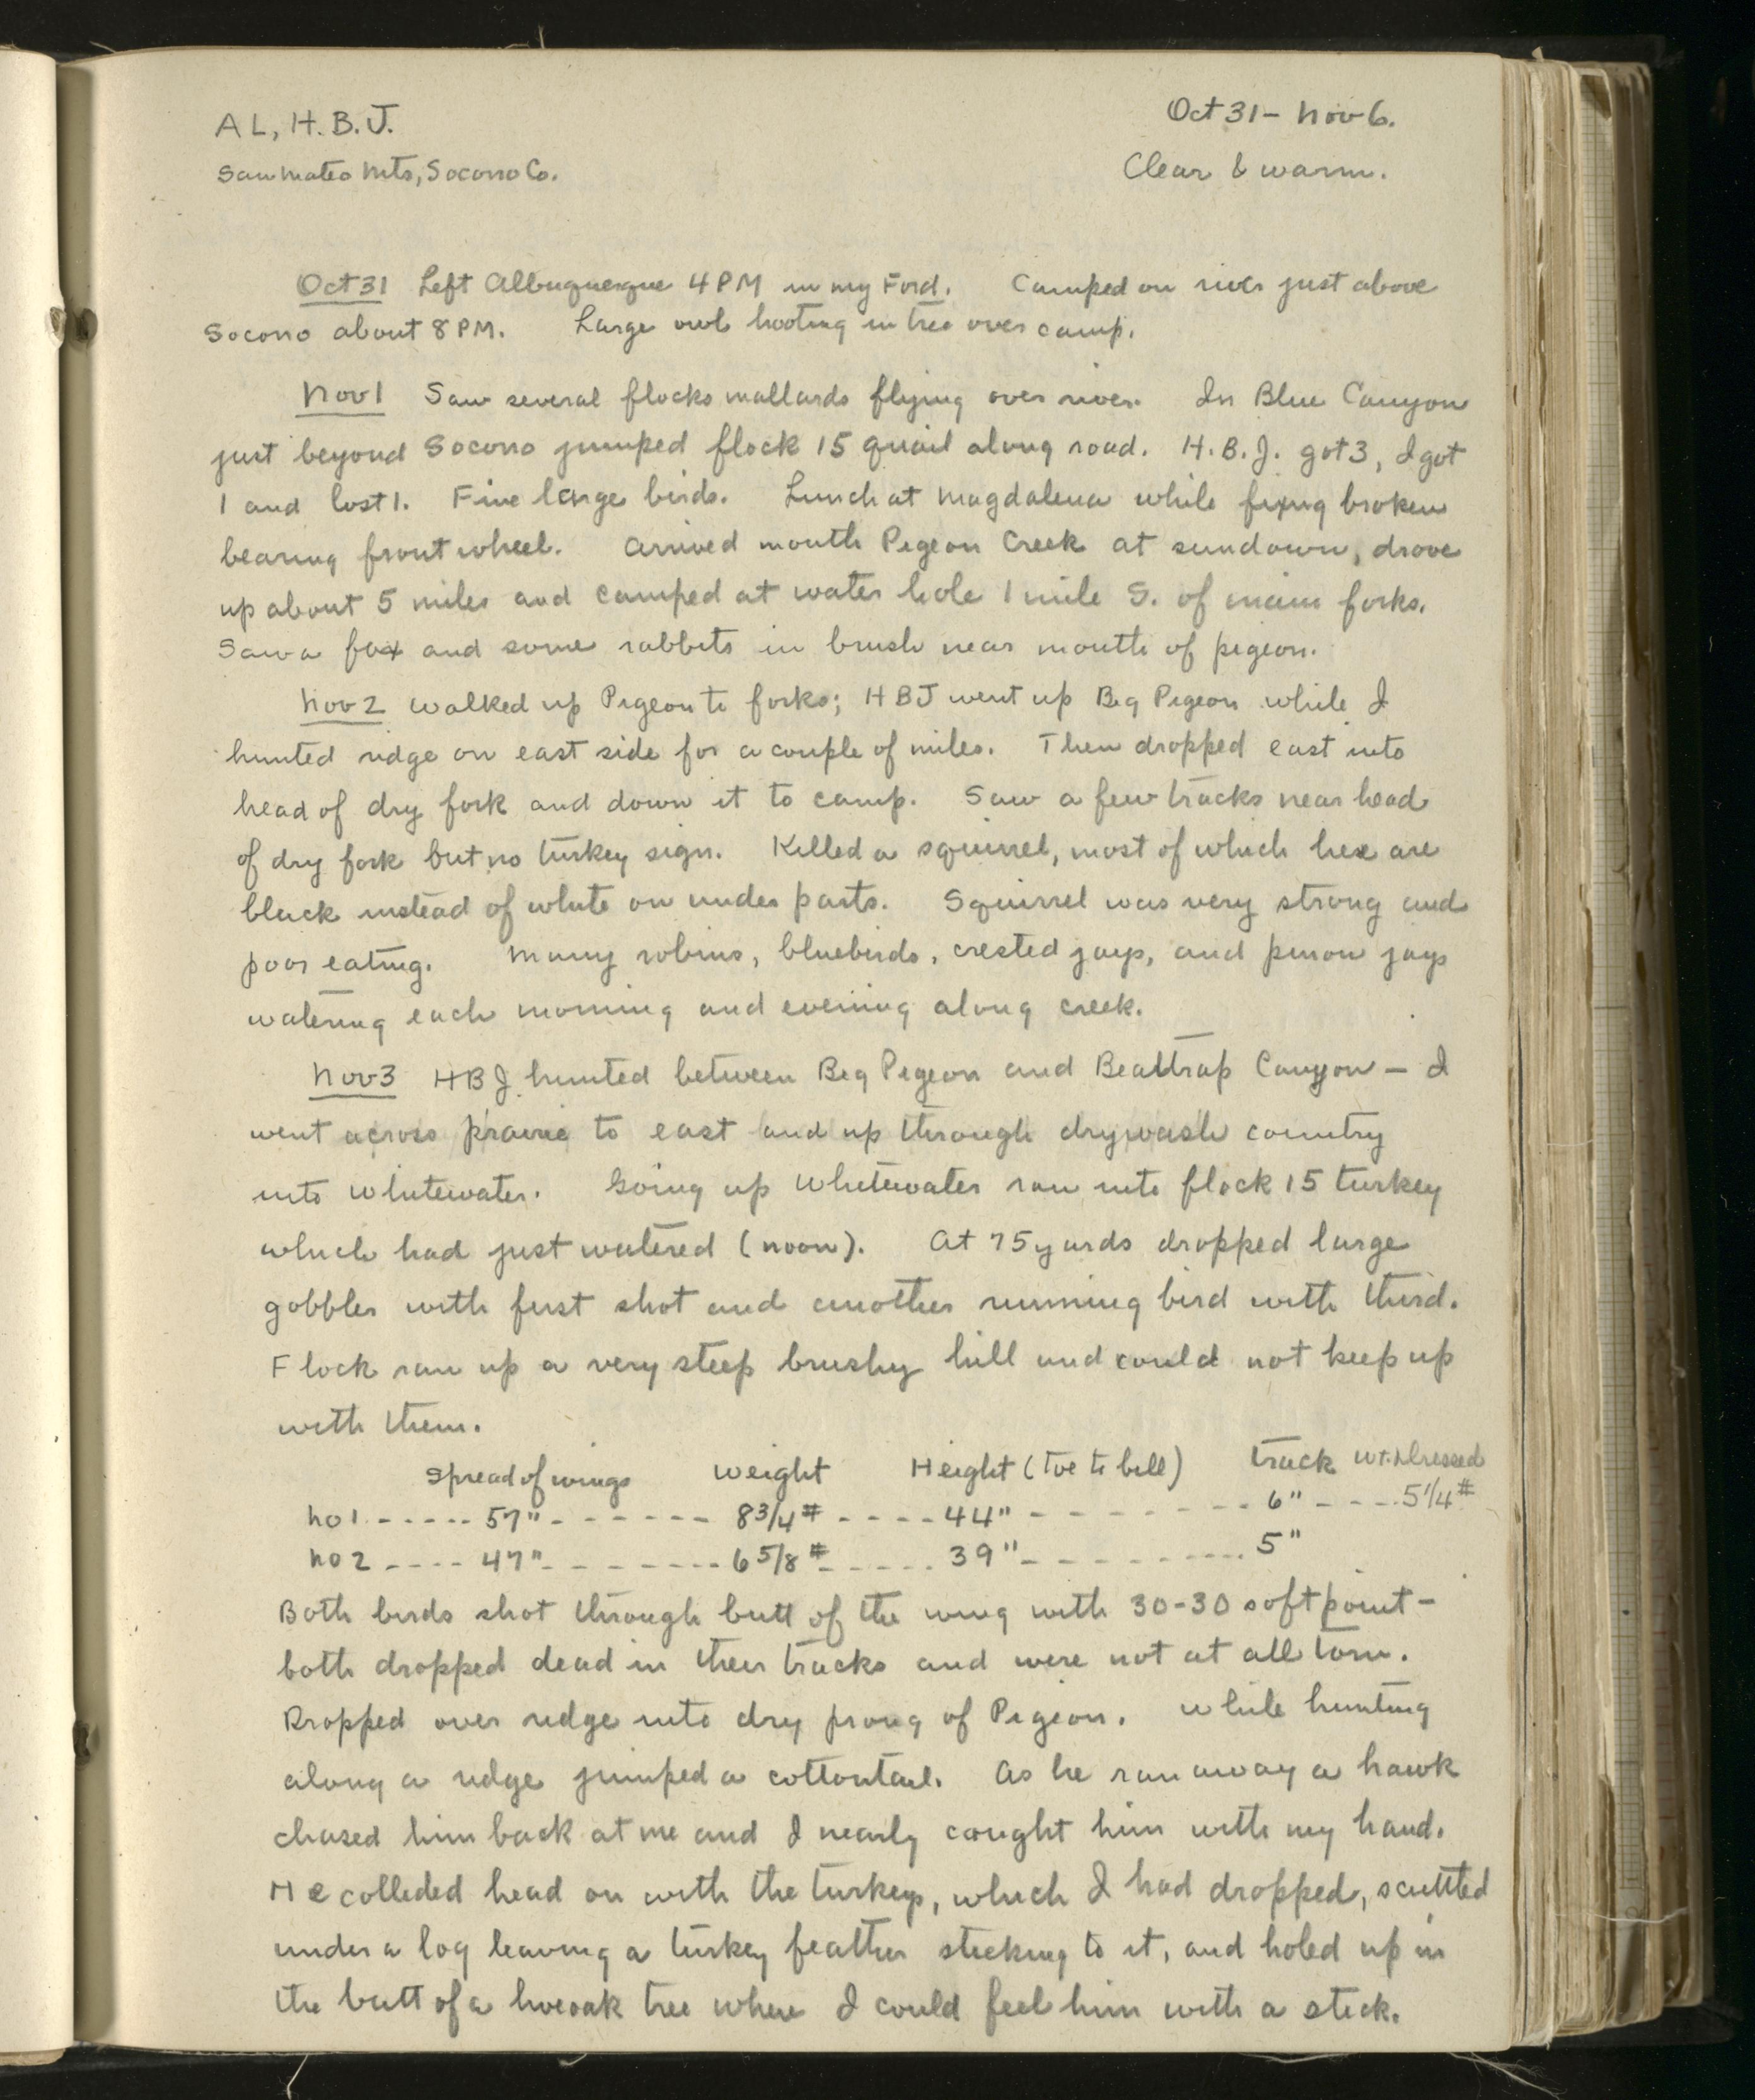 AL, H.B.J.
Oct 31 - Nov 6.
San Mateo Mts, Socorro Co.
Clear & warm.
Oct 31 Left Albuquerque 4 PM in my Ford. Camped on river just above
Socorro about 8 PM. Large owl hooting in tree over camp.
Nov 1 Saw several flocks mallards flying over river. In Blue Canyon
just beyond Socorro jumped flock 15 quail along road. H.B.J. got 3, I got
1 and lost 1. Fine large birds. Lunch at Magdalena while fixing broken
bearing front wheel. Arrived mouth Pigeon Creek at sundown, drove
up about 5 miles and camped at water hole 1 mile S. of main forks.
Saw a fox and some rabbits in brush near mouth of pigeon.
Nov 2 walked up Pigeon to forks; HBJ went up Big Pigeon while I
hunted ridge on east side for a couple of miles. Then dropped east into
head of dry fork and down it to camp. Saw a few tracks near head
of dry fork but no turkey sign. Killed a squirrel, most of which here are
black instead of white on under parts. Squirrel was very strong and
poor eating. Many robins, bluebirds, crested jays, and pinon jays
watering each morning and evening along creek.
Nov 3 HBJ hunted between Big Pigeon and Beartrap Canyon - I
went across prairie to east and up through drywash country
into whitewater. Going up Whitewater ran into flock 15 turkey
which had just watered (noon). At 75 yards dropped large
gobbler with first shot and another running bird with third.
Flock ran up a very steep brushy hill and could not keep up
with them.
Spread of wings Weight Height (toe to bill) track Wt. Dressed
No 1 ----- 57" ------- 8 3/4 # ---- 44" -------- 6" ---- 5 1/4 #
No 2 ---- 47" -------- 6 5/8 # ----- 39" ---------- 5"
Both birds shot through butt of the wing with 30-30 soft point -
both dropped dead in their tracks and were not at all torn.
Dropped over ridge into dry prong of Pigeon. While hunting
along a ridge jumped a cottontail. As he ran away a hawk
chased him back at me and I nearly caught him with my hand.
He collided head on with the turkeys, which I had dropped, scuttled
under a log leaving a turkey feather sticking to it, and holed up in
the butt of a liveoak tree where I could feel him with a stick.